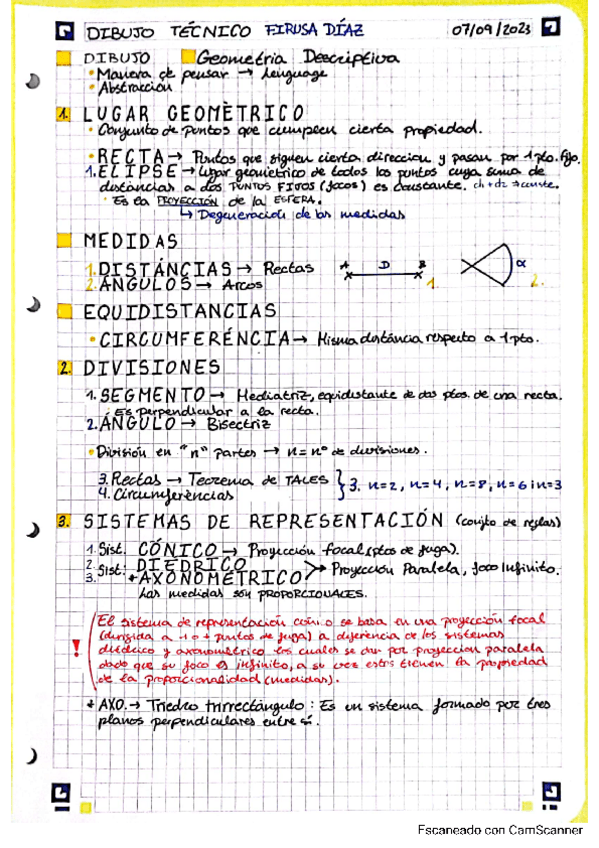 DIBUJO TÉCNICO FIRUSA DÍAZ 07/09/2023
DIBUJO Geometria Descriptiva
• Manera de pensar → Lenguage
• Abstracción
1. LUGAR GEOMÈTRICO
• Conjunto de puntos que cumpeen cierta propiedad.
• RECTA → Puntos que siguen cierta direccion y pasan por 1 pto. fijo.
1. ELIPSE → Lugar geometrico de todos los puntos cuya suma de
distancias a dos PUNTOS FIJOS (focos) es constante. d1 + d2 = conste.
• Es la PROYECCIÓN de la ESFERA.
↳ Degeneración de las medidas
MEDIDAS
1. DISTÁNCIAS → Rectas A D B 1.
2. ÁNGULOS → Arcos α 2.
EQUIDISTANCIAS
• CIRCUMFERÉNCIA → Misma distáncia respecto a 1 pto.
2. DIVISIONES
1. SEGMENTO → Mediatriz, equidistante de dos ptos. de una recta.
Es perpendicular a la recta.
2. ÁNGULO → Bisectriz
• División en "n" partes → n = nº de divisiones.
3. Rectas → Teorema de TALES
4. Circumferències } 3. n=2, n=4, n=8, n=6 i n=3
3. SISTEMAS DE REPRESENTACIÓN (conjto de reglas)
1. Sist. CÓNICO → Proyección focal (ptos de fuga).
2. Sist: DIEDRICO
3. * AXONOMÉTRICO > Proyección Paralela, foco infinito.
Las medidas son PROPORCIONALES.
! El sistema de representación cónico se basa en una proyección focal
(dirigida a 1 o + puntos de fuga) a diferencia de los sistemas
diédrico y axonométrico los cuales se dan por proyeccion paralela
dado que su foco es infinito, a su vez estos tienen la propiedad
de la proporcionalidad (medidas).
* AXO. → Triedro trirrectángulo: Es un sistema formado por tres
planos perpendiculares entre sí.
Escaneado con CamScanner